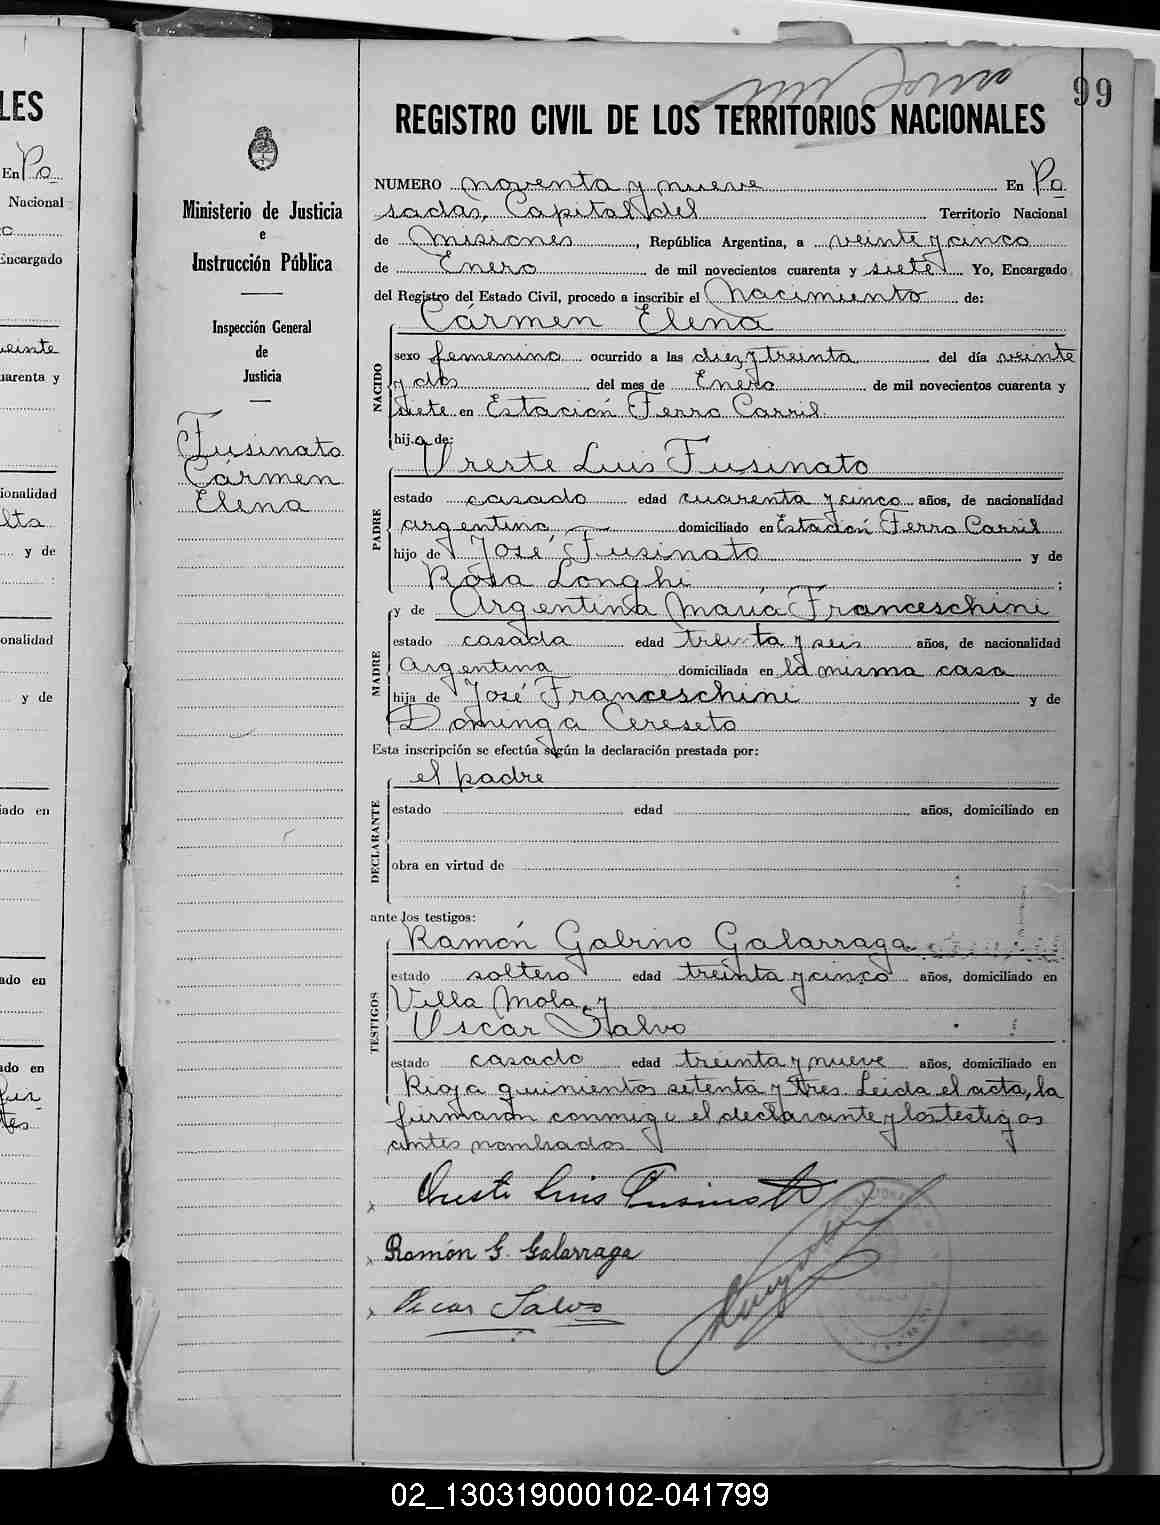 99
REGISTRO CIVIL DE LOS TERRITORIOS NACIONALES
Ministerio de Justicia
e
Instrucción Pública
Inspección General
de
Justicia
Fusinato
Cármen
Elena
NUMERO noventa y nueve En Po
sadas, Capital del Territorio Nacional
de Misiones, República Argentina, a veinte y cinco
de Enero de mil novecientos cuarenta y siete Yo, Encargado
del Registro del Estado Civil, procedo a inscribir el Nacimiento de:
Cármen Elena
NACIDO
sexo femenino ocurrido a las diez y treinta del día veinte
y dos del mes de Enero de mil novecientos cuarenta y
siete en Estación Ferro Carril.
hija de:
Oreste Luis Fusinato
PADRE
estado casado edad cuarenta y cinco años, de nacionalidad
argentina domiciliado en Estación Ferro Carril
hijo de José Fusinato y de
Rosa Longhi ;
y de Argentina María Franceschini
MADRE
estado casada edad treinta y seis años, de nacionalidad
Argentina domiciliada en la misma casa
hija de José Franceschini y de
Dominga Cereseto
Esta inscripción se efectúa según la declaración prestada por:
el padre
DECLARANTE
estado edad años, domiciliado en
obra en virtud de
ante los testigos:
Ramón Gabino Galarraga
TESTIGOS
estado soltero edad treinta y cinco años, domiciliado en
Villa Mola, y
Oscar Salvo
estado casado edad treinta y nueve años, domiciliado en
Rioja quinientos setenta y tres. Leida el acta, la
firmaron conmigo el declarante y los testigos
antes nombrados
Oreste Luis Fusinato
Ramón G. Galarraga
Oscar Salvo
LES
En Po
Nacional
Encargado
veinte
uarenta y
ionalidad
lta
y de
onalidad
y de
iado en
ado en
ado en
02_130319000102-041799